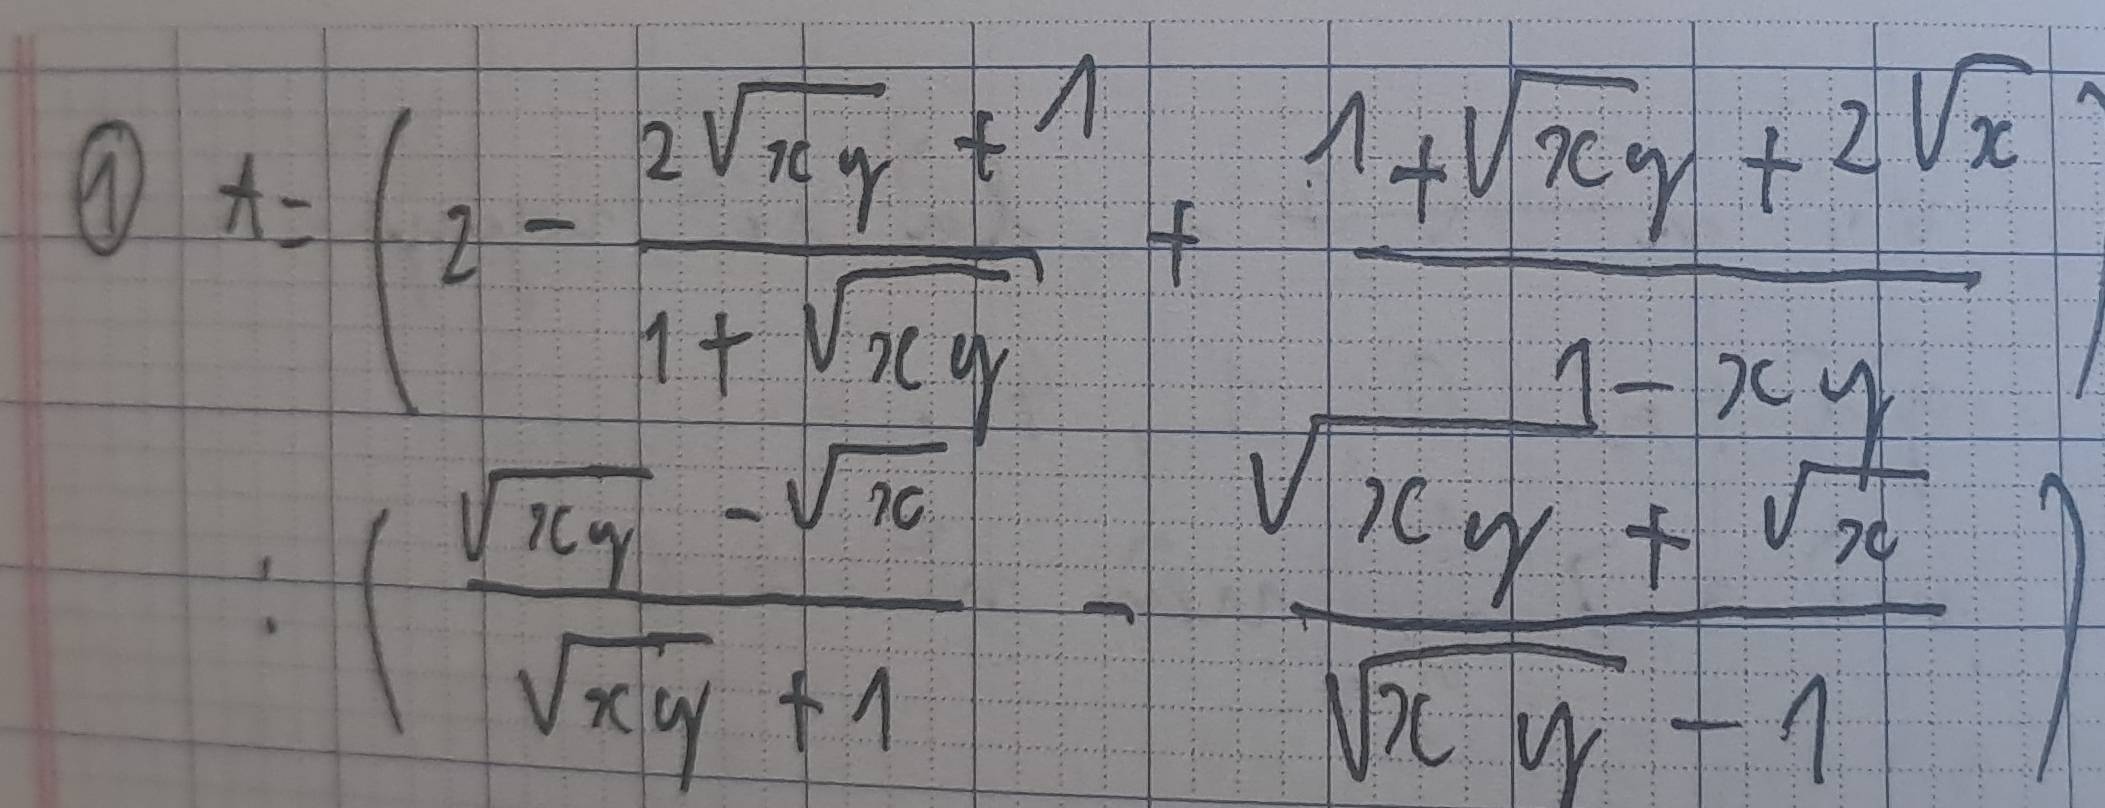 ① A = ( 2 - \frac{2\sqrt{xy} + 1}{1 + \sqrt{xy}} + \frac{1 + \sqrt{xy} + 2\sqrt{x}}{1 - xy} )
: ( \frac{\sqrt{xy} - \sqrt{x}}{\sqrt{xy} + 1} - \frac{\sqrt{xy} + \sqrt{x}}{\sqrt{xy} - 1} )